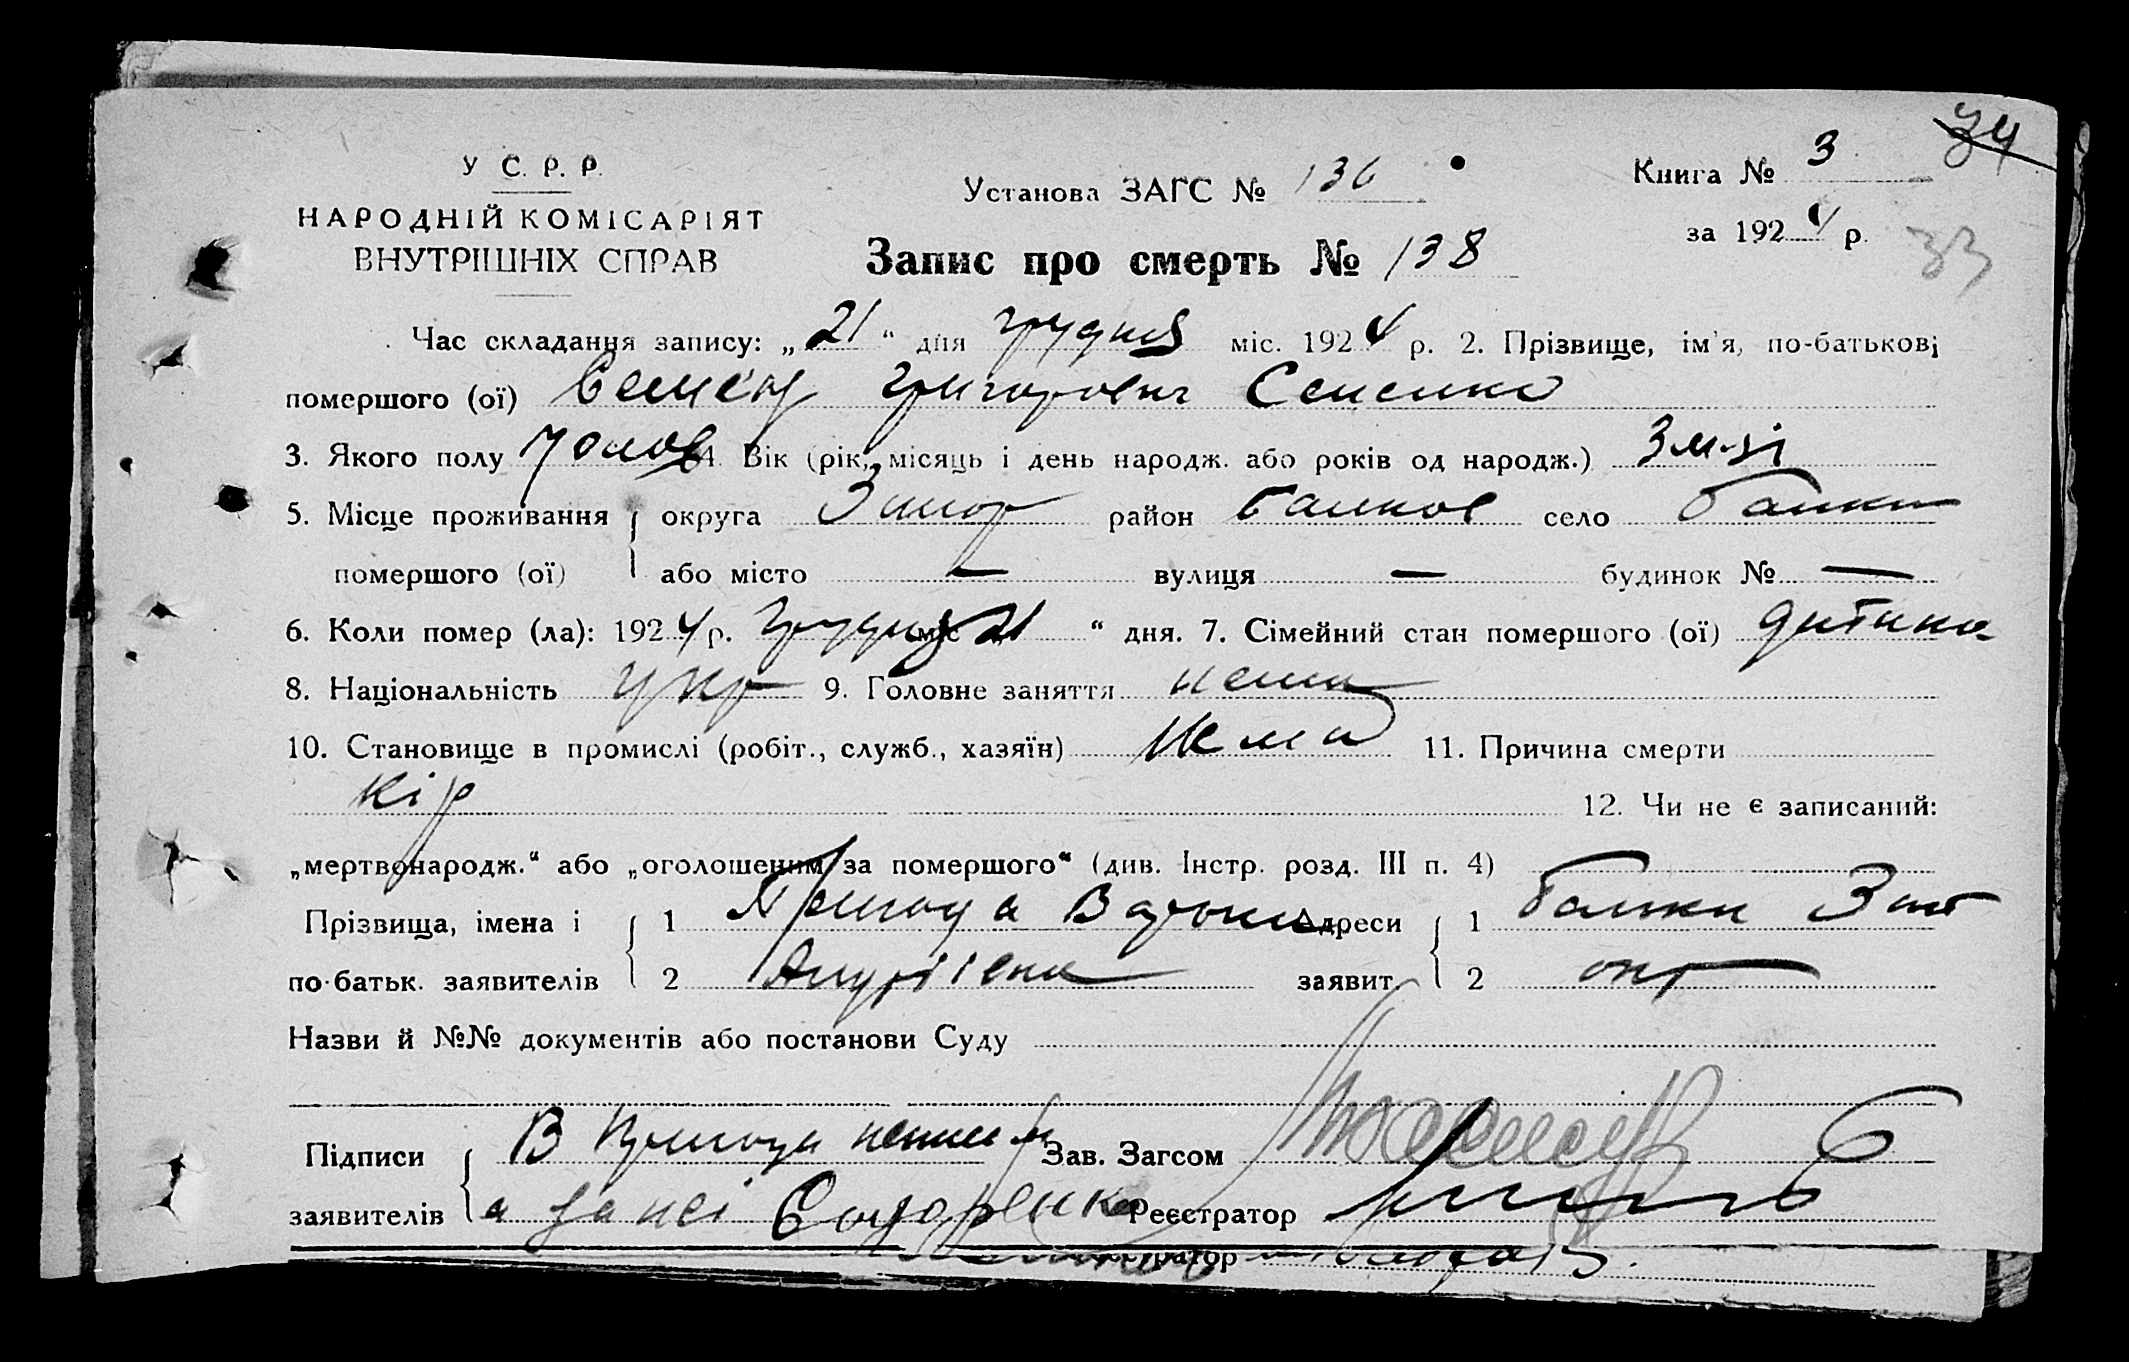 У С. Р. Р.
НАРОДНІЙ КОМІСАРІЯТ
ВНУТРІШНІХ СПРАВ
Установа ЗАГС № 136
Книга № 3
34
за 1924 р.
33
Запис про смерть № 138
Час складання запису: „21“ дня грудня міс. 1924 р. 2. Прізвище, ім'я, по-батькові
помершого (ої) Семен Григорович Семенко
3. Якого полу Чолов 4. Вік (рік, місяць і день народж. або років од народж.) 3 м-ці
5. Місце проживання округа Запор район Балков село Балки
помершого (ої) або місто — вулиця — будинок № —
6. Коли помер (ла): 1924 р. Грудня міс „21“ дня. 7. Сімейний стан помершого (ої) дитина
8. Національність укр 9. Головне заняття нема
10. Становище в промислі (робіт., служб., хазяїн) нема 11. Причина смерти
кір 12. Чи не є записаний:
„мертвонародж.“ або „оголошеним за помершого“ (див. Інстр. розд. III п. 4)
Прізвища, імена і 1 Адреси 1 Балки Зап
по-батьк. заявителів 2 Андріївна заявит. 2 окр
Назви й №№ документів або постанови Суду
Підписи В Зав. Загсом
заявителів а за неї Реєстратор